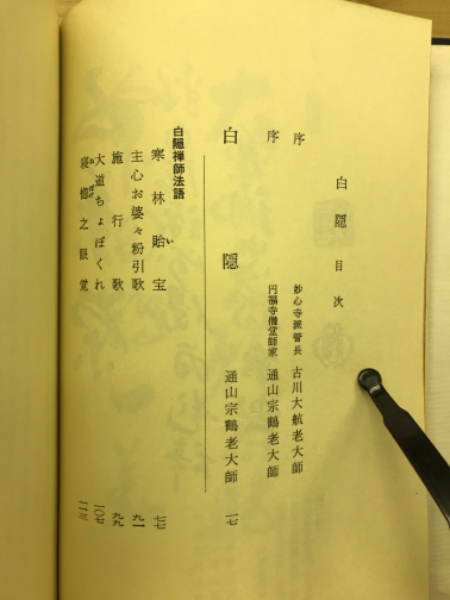 白隠目次
序 妙心寺派管長 古川大航老大師
序 円福寺僧堂師家 通山宗鶴老大師
白隠 通山宗鶴老大師 一七
白隠禅師法語
寒林貽宝 七七
い
主心お婆々粉引歌 九一
施行歌 九九
大道ちょぼくれ 一〇七
寝惚之眼覚 一一三